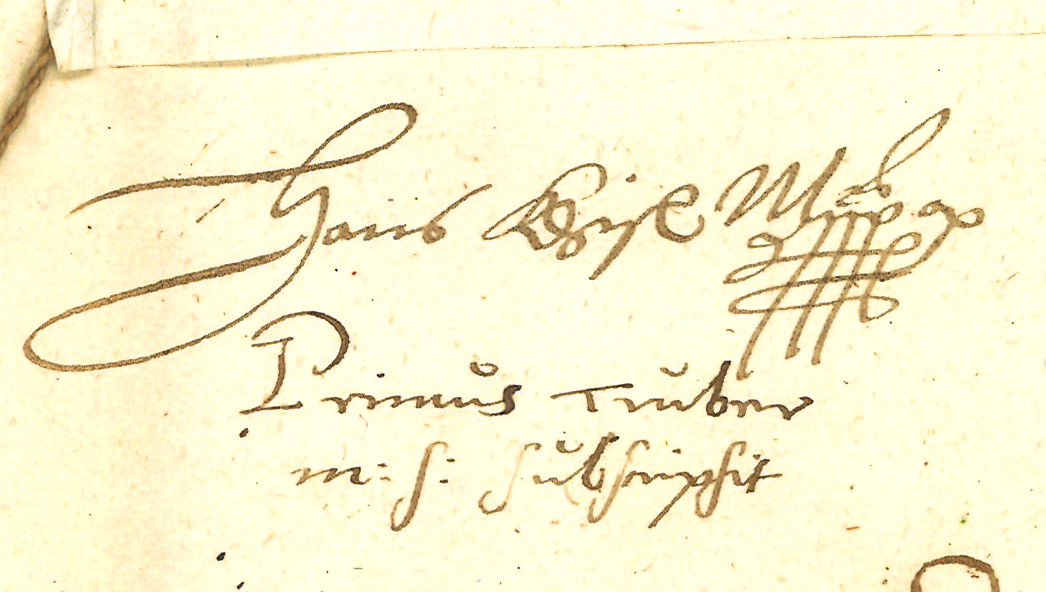 Hans
Primus Truber
m: s: subscripsit